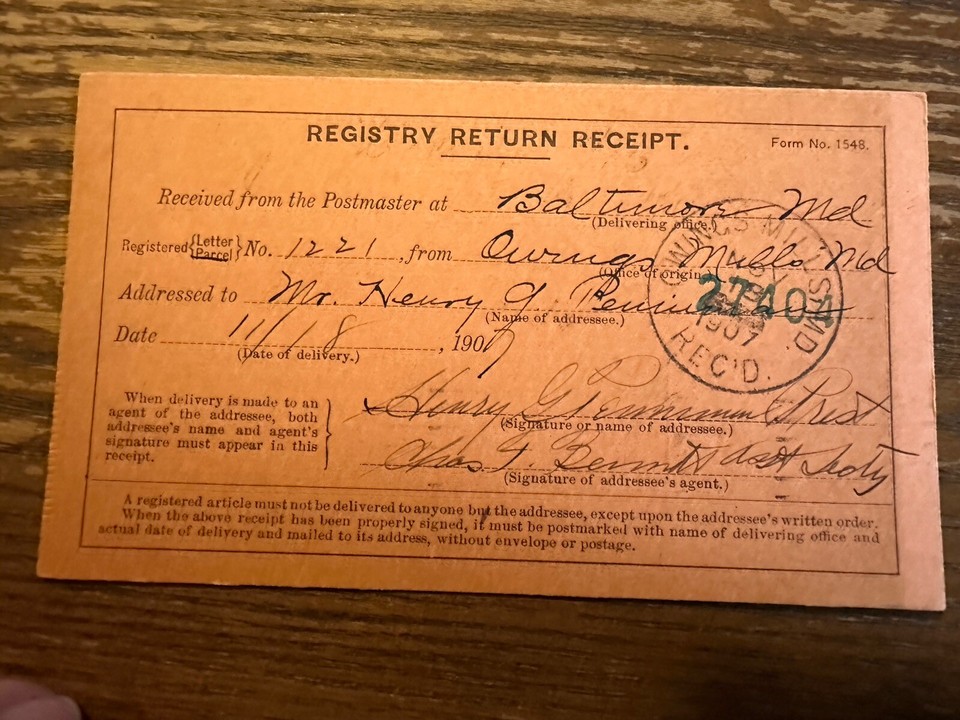 REGISTRY RETURN RECEIPT.
Form No. 1548.
Received from the Postmaster at Baltimore Md
(Delivering office.)
Registered {Letter Parcel} No. 1221, from Owings Mills Md
(Office of origin.)
Addressed to Mr. Henry G.
(Name of addressee.)
Date 11/18, 1907
(Date of delivery.)
OWINGS MILLS MD
1907
REC'D.
27404
When delivery is made to an
agent of the addressee, both
addressee's name and agent's
signature must appear in this
receipt.
Henry G Prest
(Signature or name of addressee.)
Chas. F.
(Signature of addressee's agent.)
A registered article must not be delivered to anyone but the addressee, except upon the addressee's written order.
When the above receipt has been properly signed, it must be postmarked with name of delivering office and
actual date of delivery and mailed to its address, without envelope or postage.